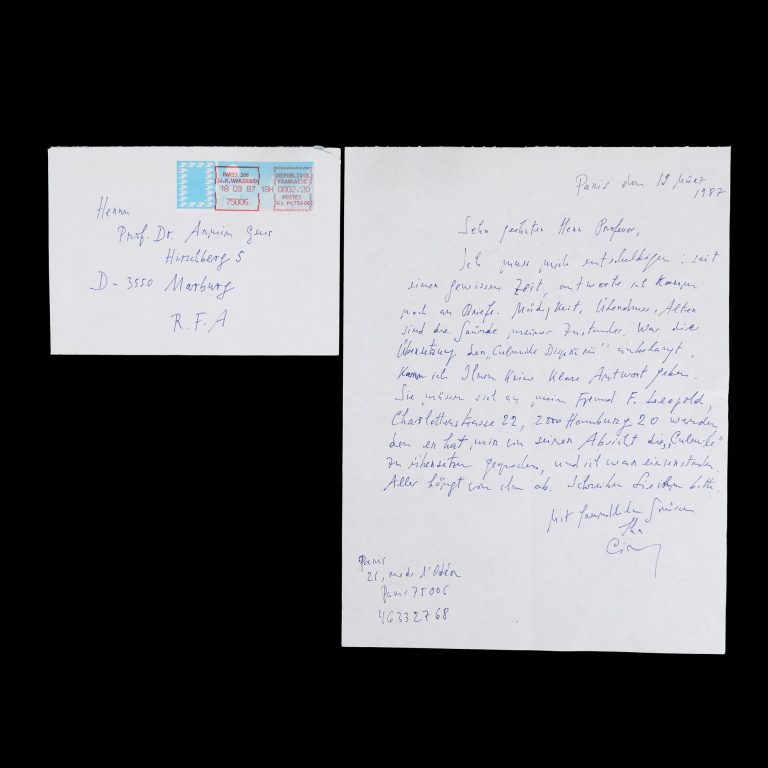 PARIS 206
24.R.VAUGIRARD
18 03 87 18H
75006
REPUBLIQUE
FRANCAISE
0002.20
POSTES
Herrn
Prof. Dr. Armin Geus
Hirschberg 5
D - 3550 Marburg
R.F.A
Paris den 12 März
1987
Sehr geehrter Herr Professor,
Ich muss mich entschuldigen: seit
einer gewissen Zeit, antworte ich kaum
noch an Briefe. Müdigkeit, Alter
sind die Gründe meiner Zustandes. Was die
Übersetzung anbelangt,
kann ich Ihnen keine klare Antwort geben.
Sie müssen sich an mein Freund F. Leopold,
Charlottenstrasse 22, 2000 Hamburg 20 wenden,
denn er hat mir von seiner Absicht die
zu übersetzen gesprochen, und ich war einverstanden.
Alles hängt von ihm ab. Schreiben Sie ihm bitte.
Mit freundlichen Grüssen
Ihr
Paris
21, rue de l'Odéon
Paris 75006
46332768